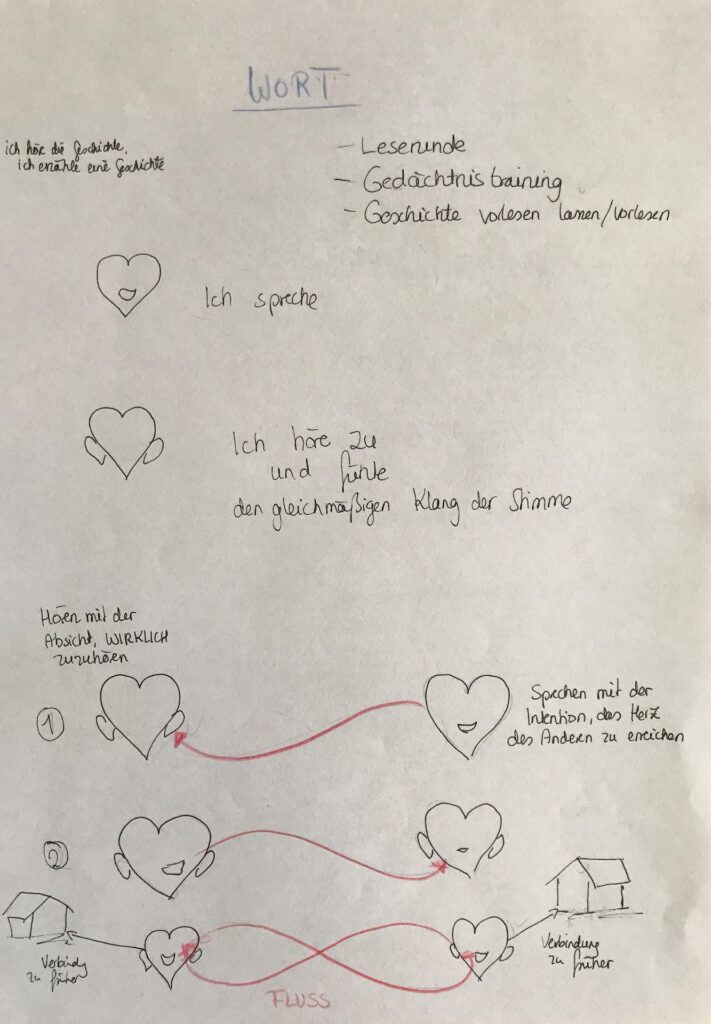 WORT
ich höre die Geschichte,
ich erzähle eine Geschichte
- Leserunde
- Gedächtnistraining
- Geschichte vorlesen lassen/vorlesen
Ich spreche
Ich höre zu
und fühle
den gleichmäßigen Klang der Stimme
Hören mit der
Absicht, WIRKLICH
zuzuhören
1
Sprechen mit der
Intention, das Herz
des Andern zu erreichen
2
Verbindg
zu früher
Verbindung
zu früher
FLUSS